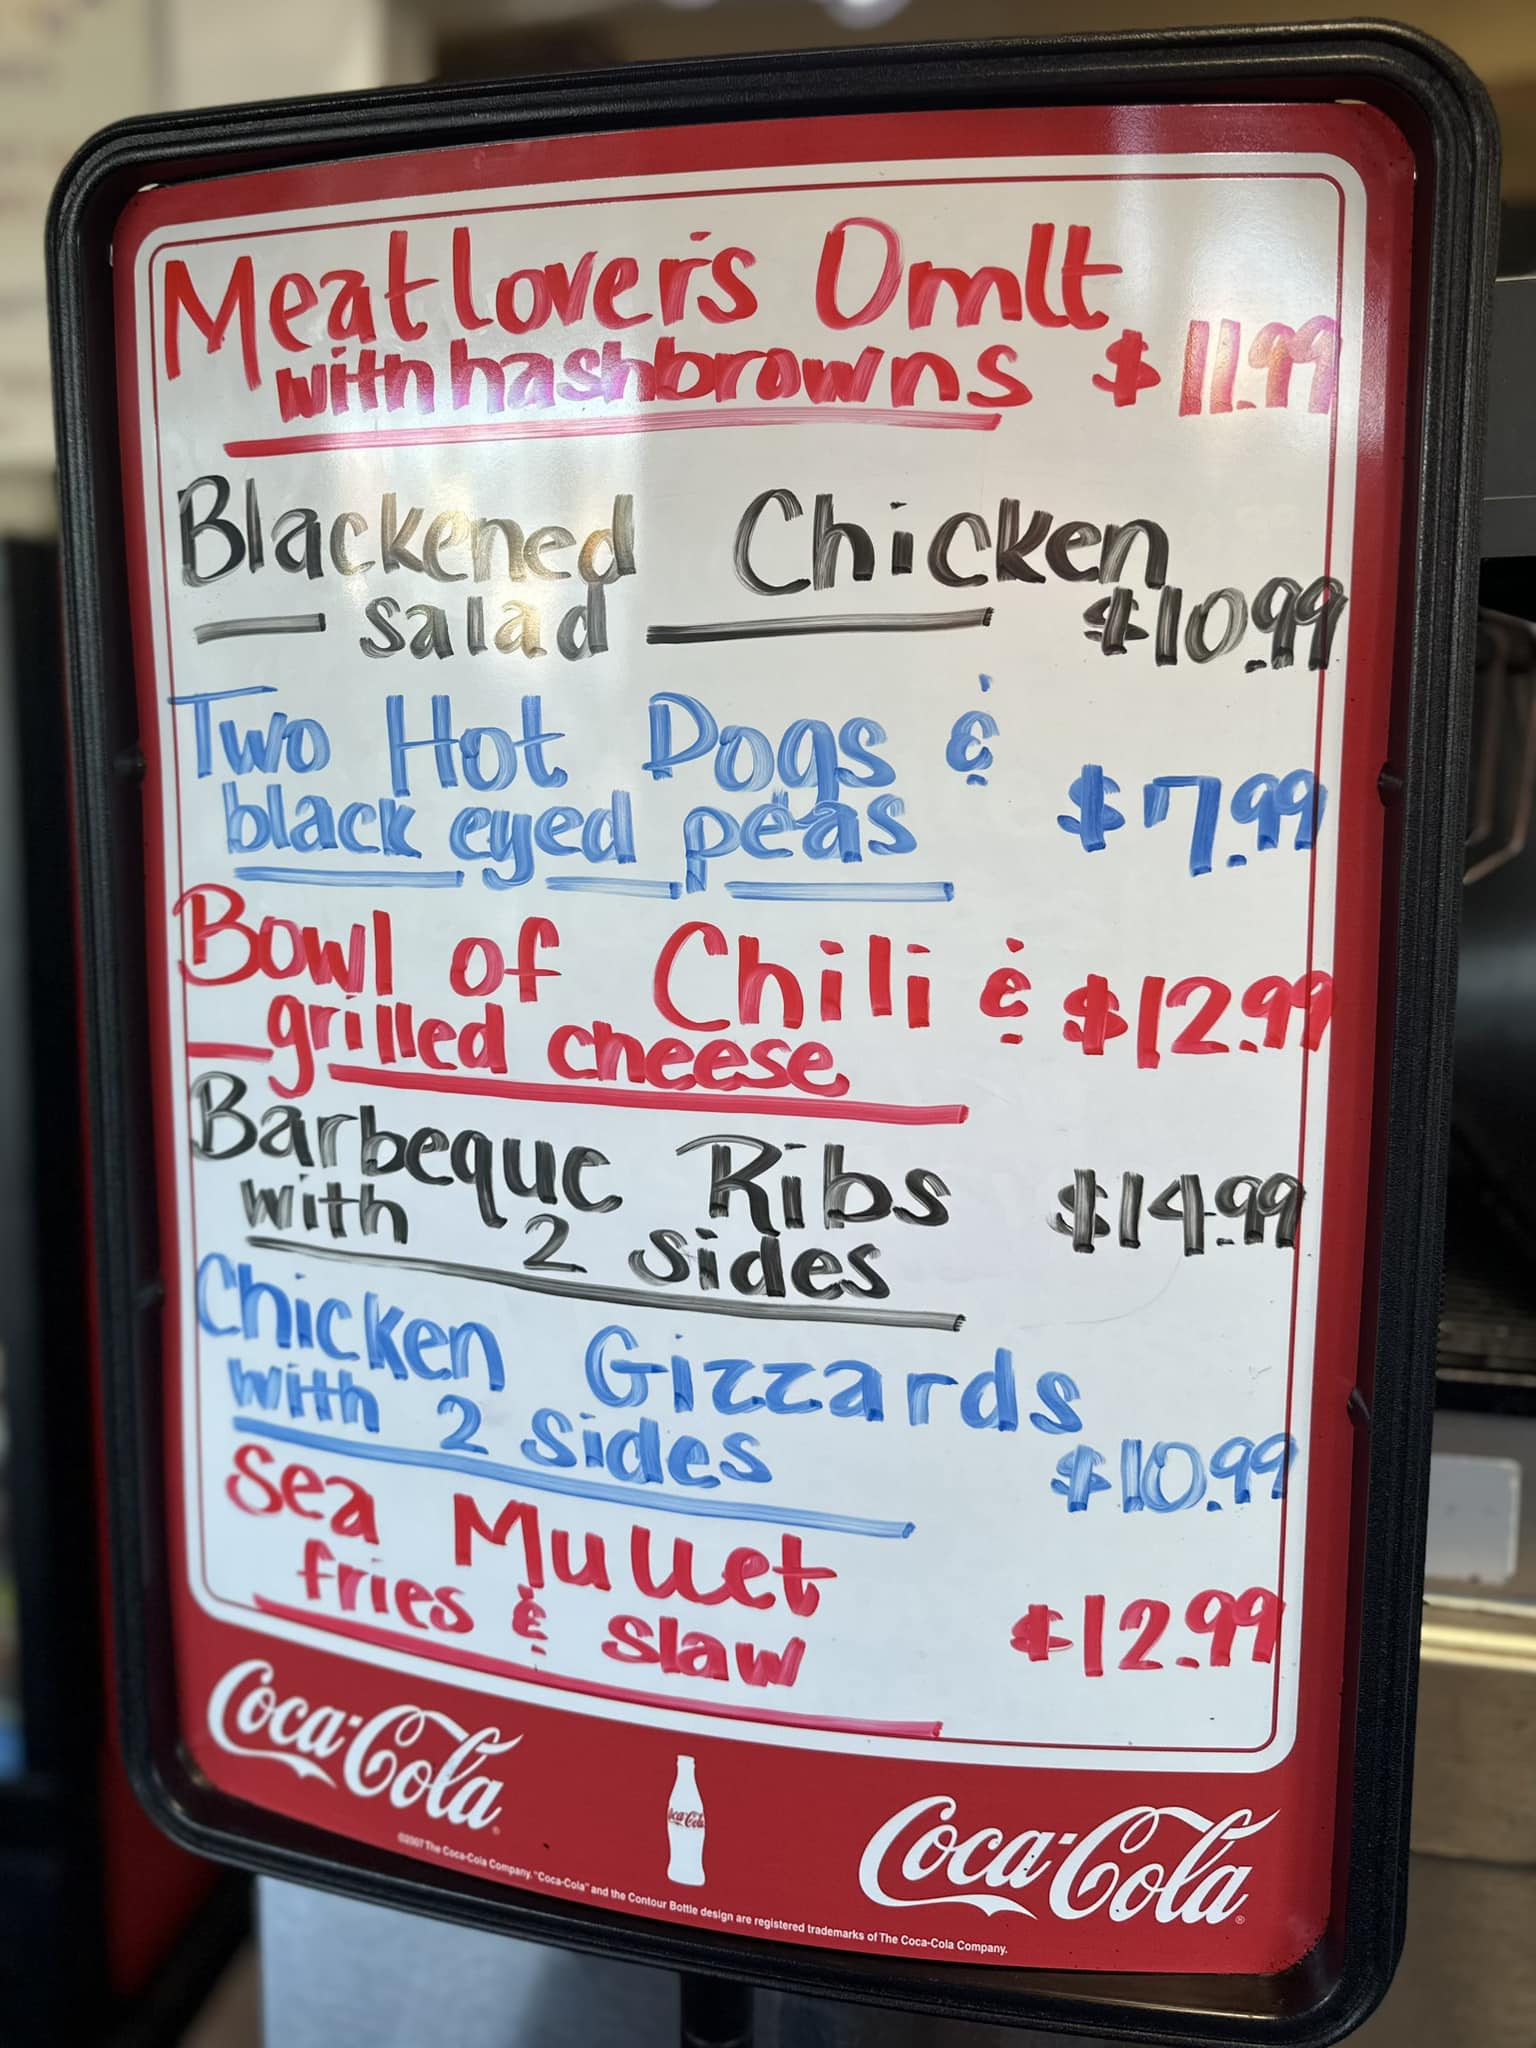 Meatlover's Omlt
with hashbrowns $11.99
Blackened Chicken
salad $10.99
Two Hot Dogs &
black eyed peas $7.99
Bowl of Chili & $12.99
grilled cheese
Barbeque Ribs $14.99
with 2 sides
Chicken Gizzards
with 2 sides $10.99
Sea Mullet
fries & slaw $12.99
Coca-Cola
Coca-Cola
Coca-Cola
©2007 The Coca-Cola Company. "Coca-Cola" and the Contour Bottle design are registered trademarks of The Coca-Cola Company.